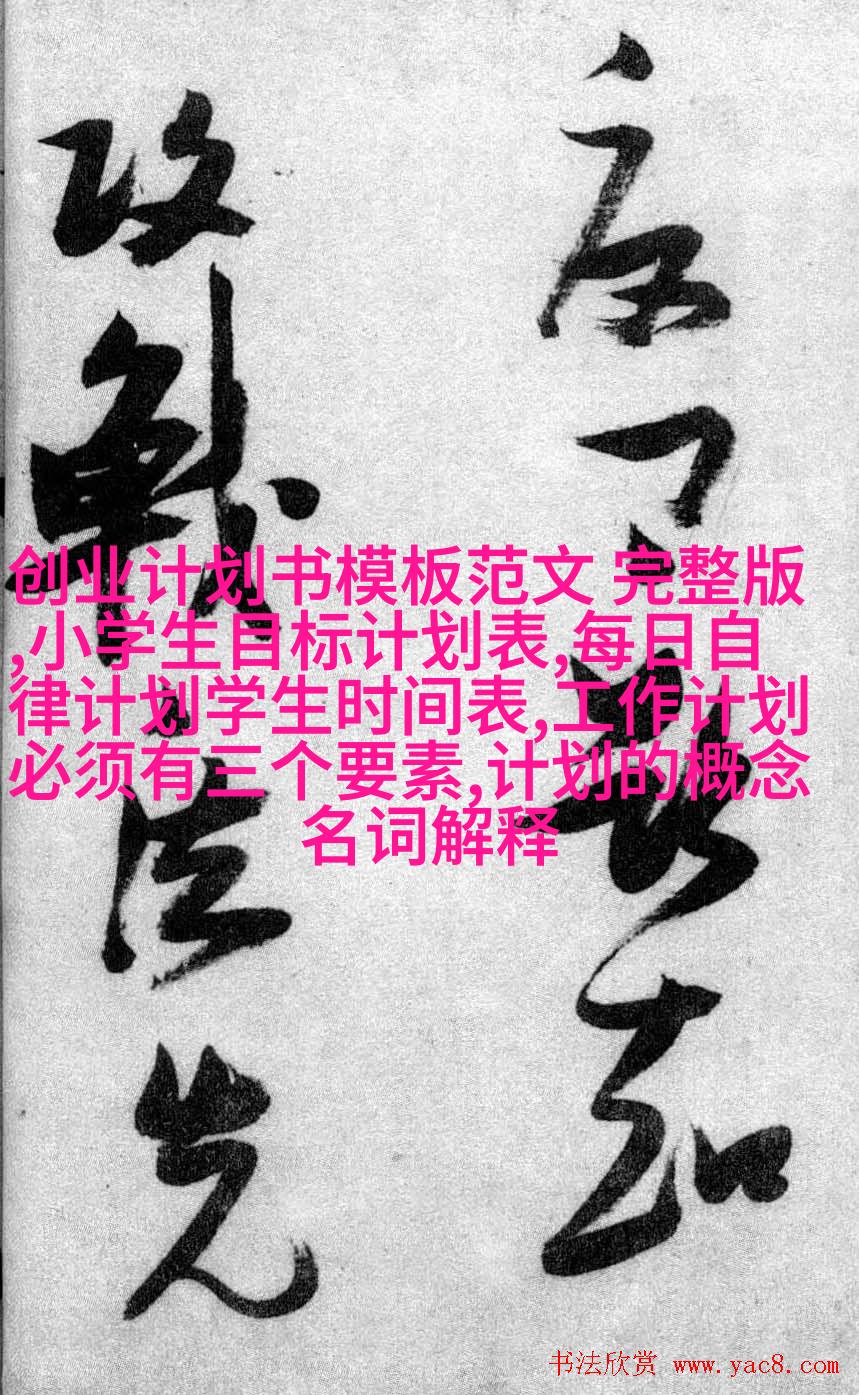 攻戰法先
创业计划书模板范文 完整版
,小学生目标计划表,每日自
律计划学生时间表,工作计划
必须有三个要素,计划的概念
名词解释
书法欣赏 www.yac8.com